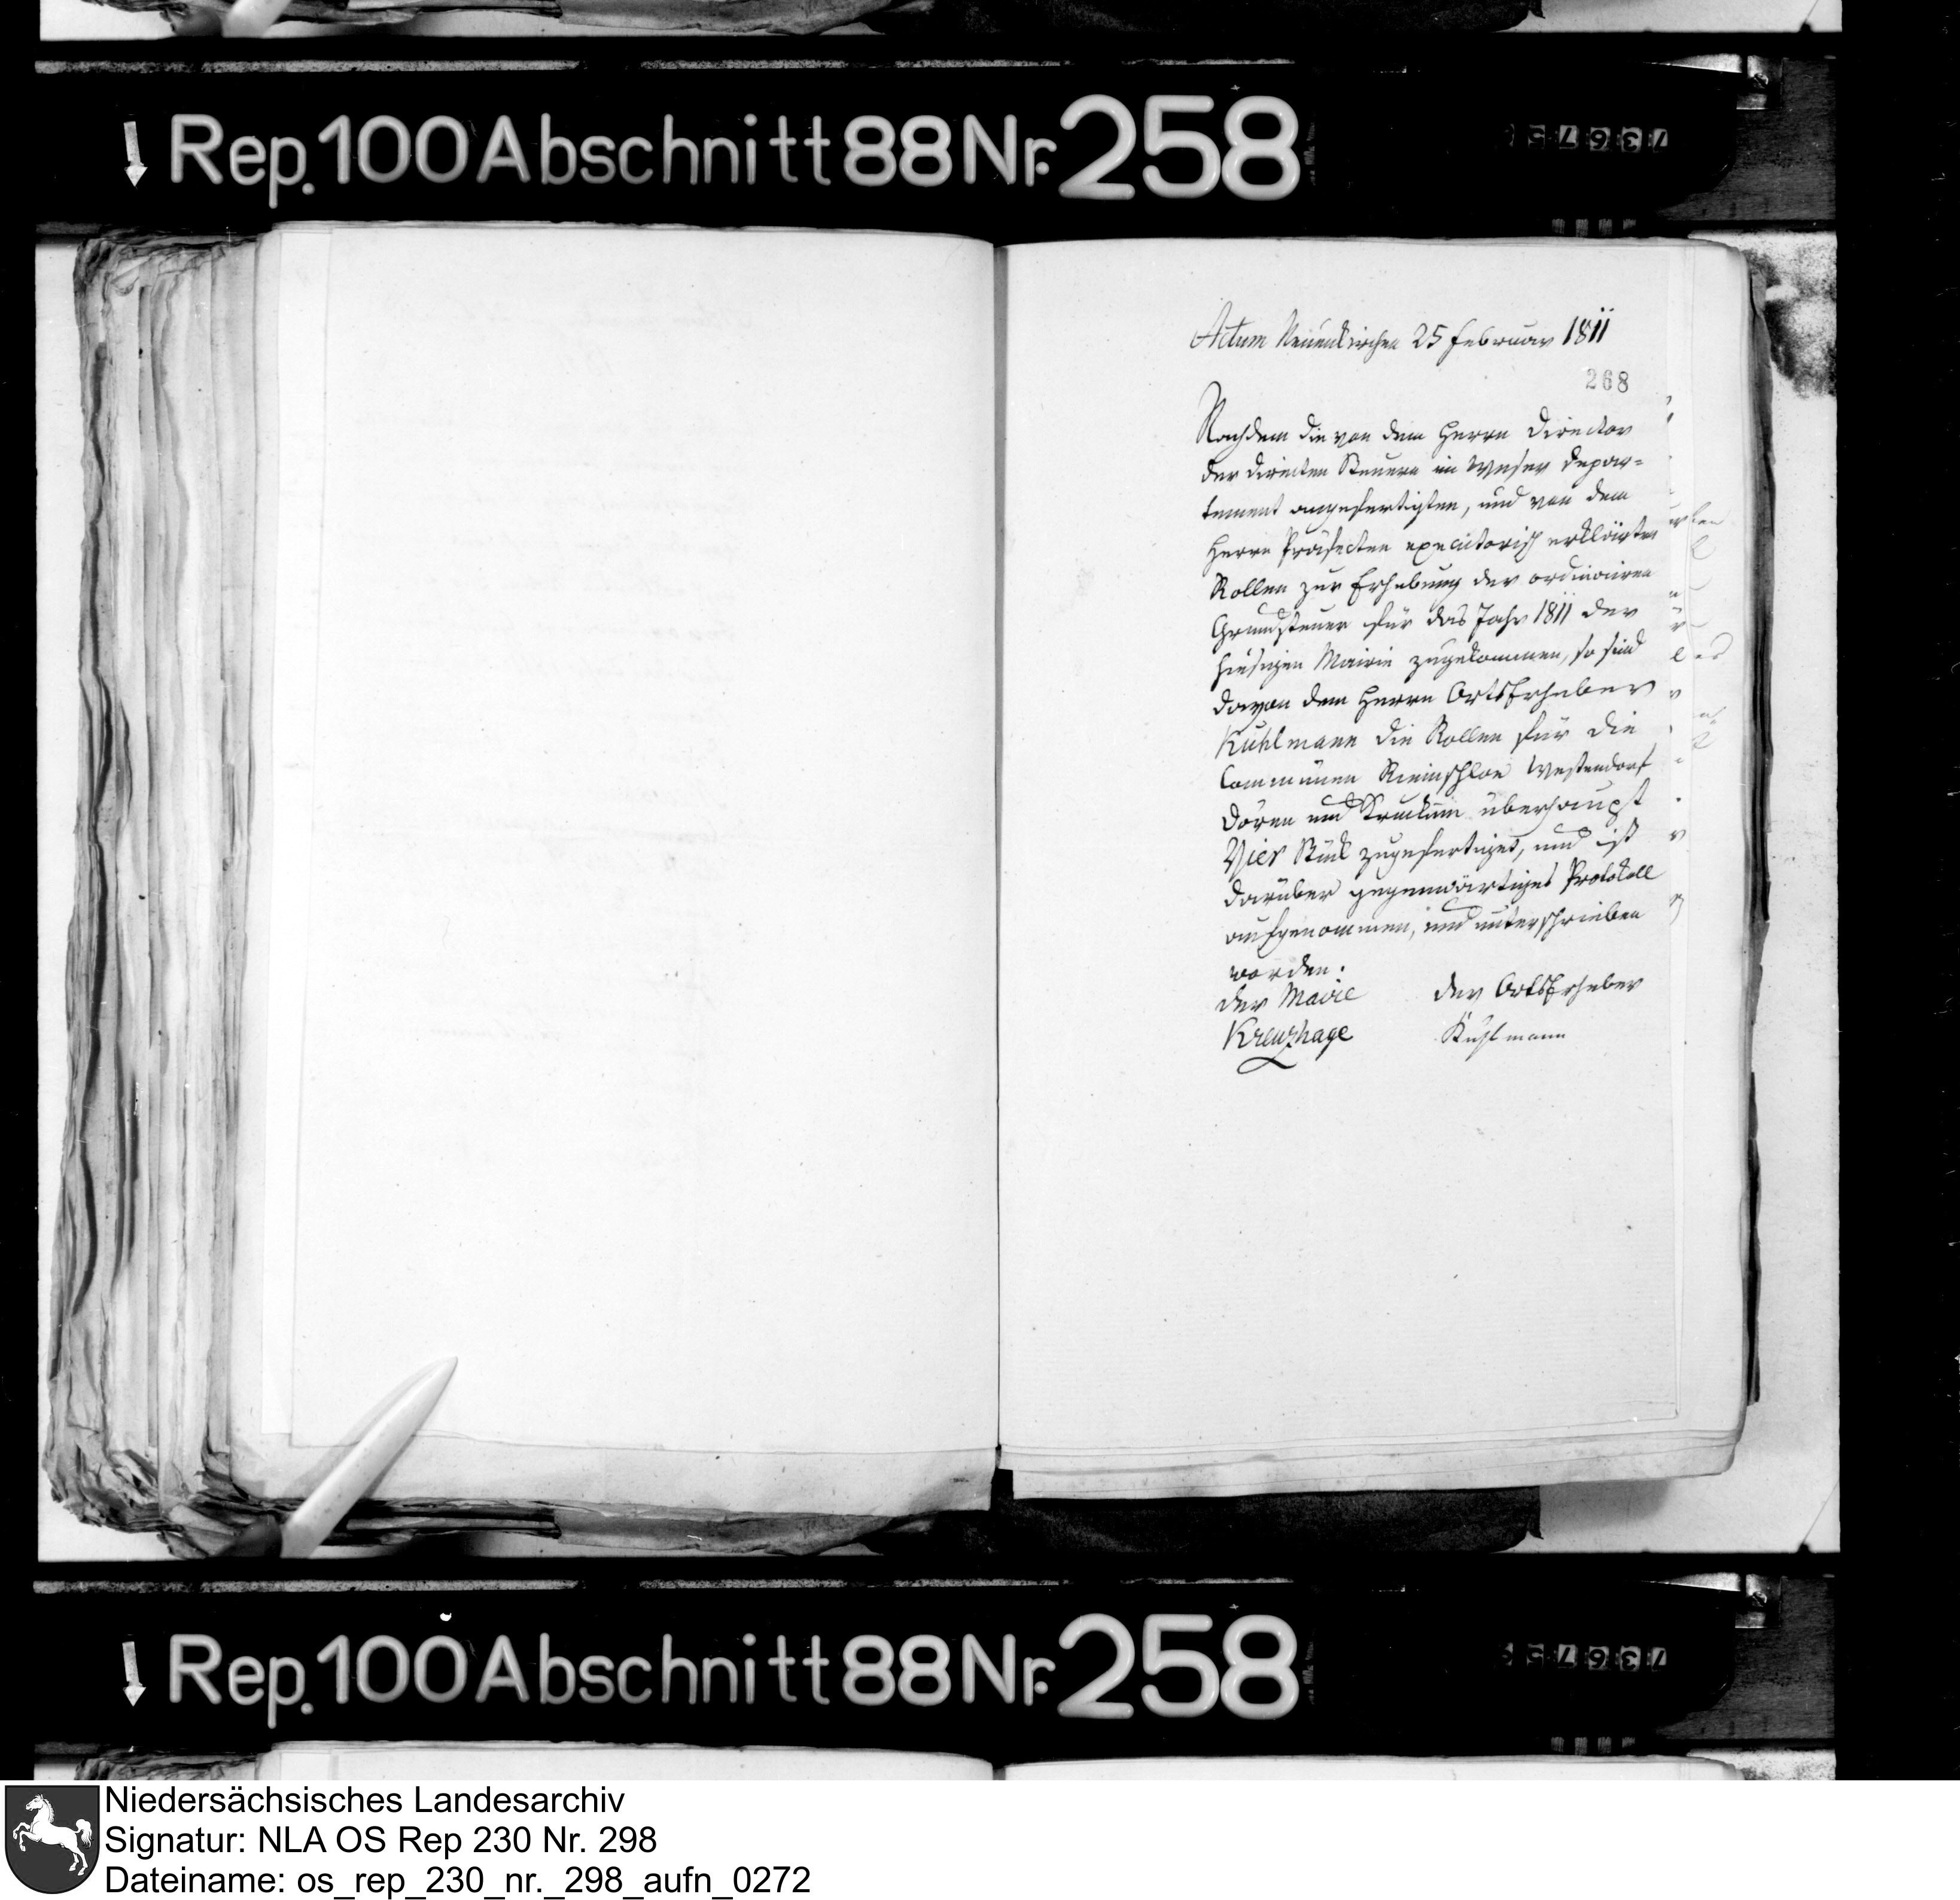 Rep. 100 Abschnitt 88 Nr. 258
Actum Neuenkirchen 25 Februar 1811
268
Nachdem die von dem Herrn Director
der directen Steuern im Weser Depar-
tement angefertigten, und von dem
Herrn Präfecten executorisch erklärten
Rollen zur Erhebung der ordinairen
Grundsteuer für das Jahr 1811 der
hiesigen Mairie zugekommen, so sind
davon dem Herrn OrtsErheber
Kuhlmann die Rollen für die
Communen Riemsloh Westendorf
Dören und Krukum überhaupt
Vier Stük zugefertiget, und ist
darüber gegenwärtiges Protokoll
aufgenommen, und unterschrieben
worden.
der Maire der OrtsErheber
Kreuzhage Kuhlmann
Rep. 100 Abschnitt 88 Nr. 258
Niedersächsisches Landesarchiv
Signatur: NLA OS Rep 230 Nr. 298
Dateiname: os_rep_230_nr._298_aufn_0272